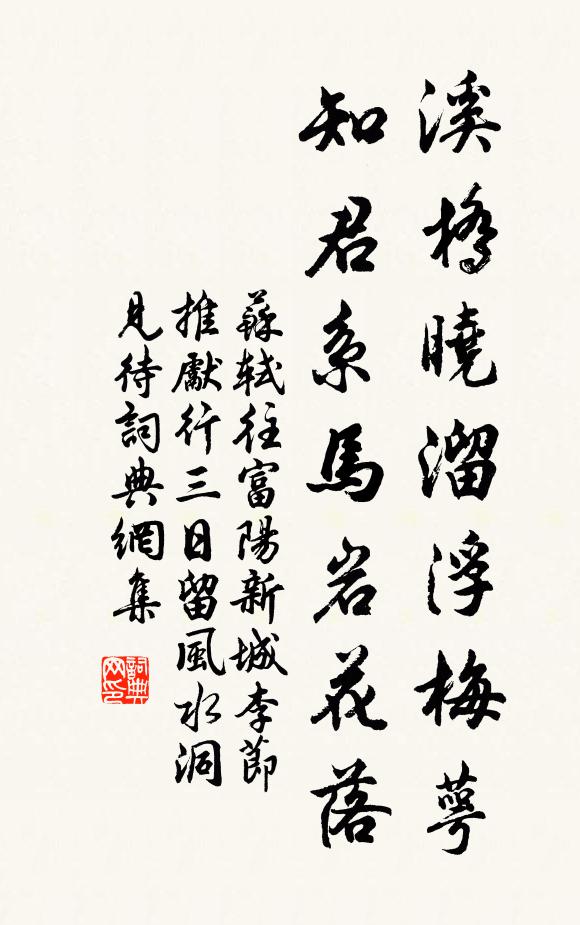 溪橋曉溜浮梅萼
知君系馬岩花落
蘇軾往富陽新城李節
推獻行三日留風水洞
見待詞典網集
詞典网印